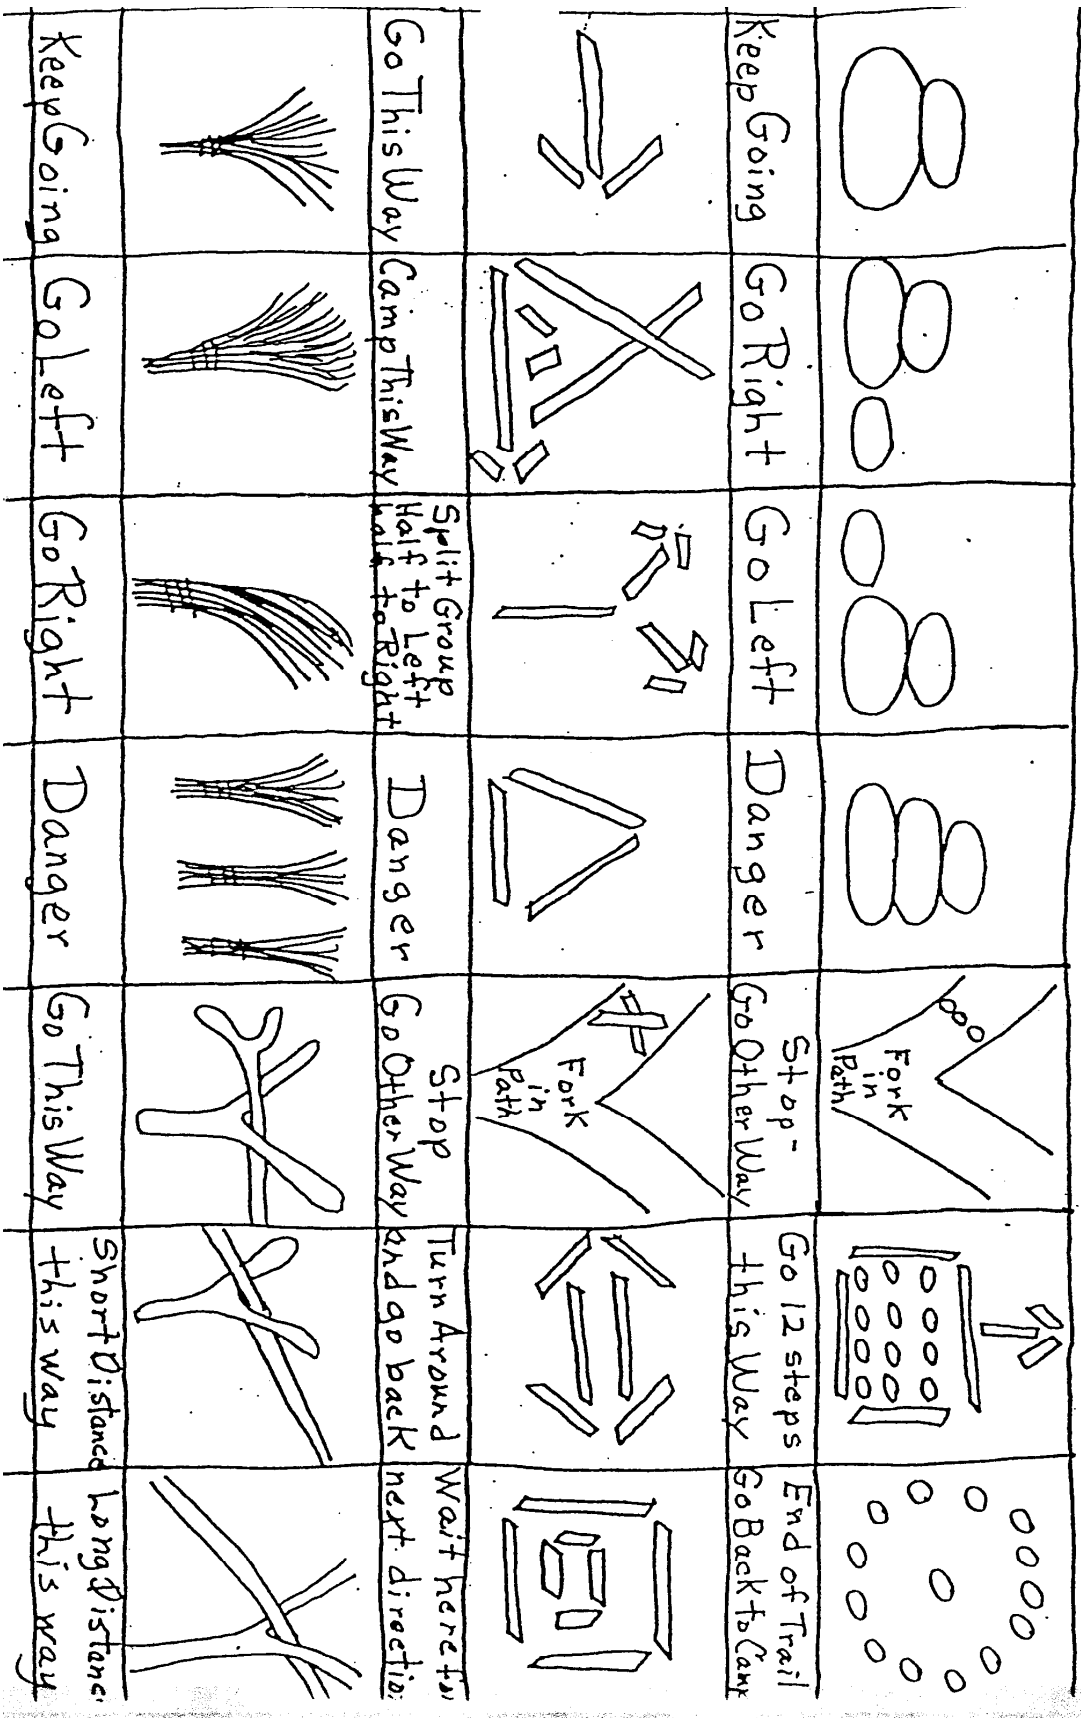 Fork
in
Path
Keep Going
Go Right
Go Left
Danger
Stop-
Go Other Way
Go 12 steps
this Way
End of Trail
Go Back to Camp
Fork
in
Path
Go This Way
Camp This Way
Split Group
Half to Left
half to Right
Danger
Stop
Go Other Way
Turn Around
and go back
Wait here for
next direction
Keep Going
Go Left
Go Right
Danger
Go This Way
Short Distance
this way
Long Distance
this way